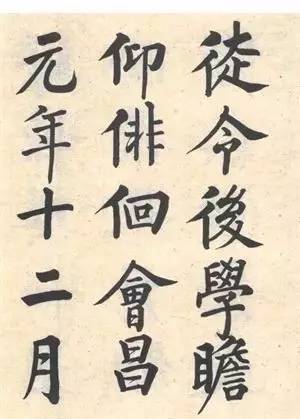 徒令後學瞻
仰俳佪會昌
元年十二月